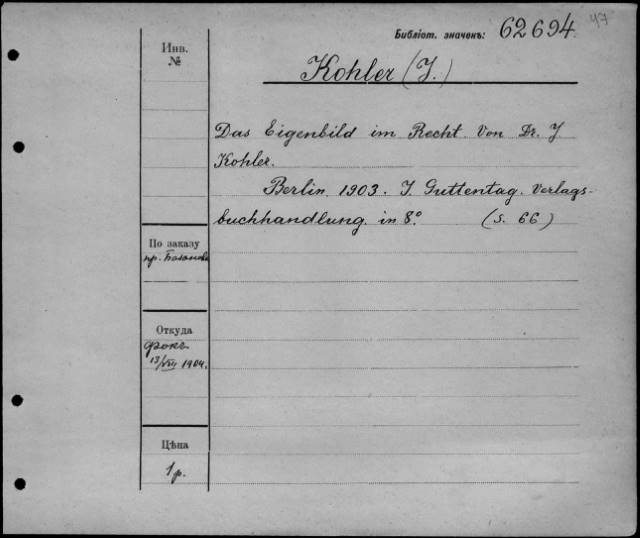 Библіот. значекъ: 62694 47
Инв.
№
Kohler (J.)
Das Eigenbild im Recht. Von Dr. J.
Kohler.
Berlin. 1903. J. Guttentag. Verlags-
buchhandlung. in 8º. (S. 66)
По заказу
пр.
Откуда
Фокъ
13/VIII 1904.
Цѣна
1 р.